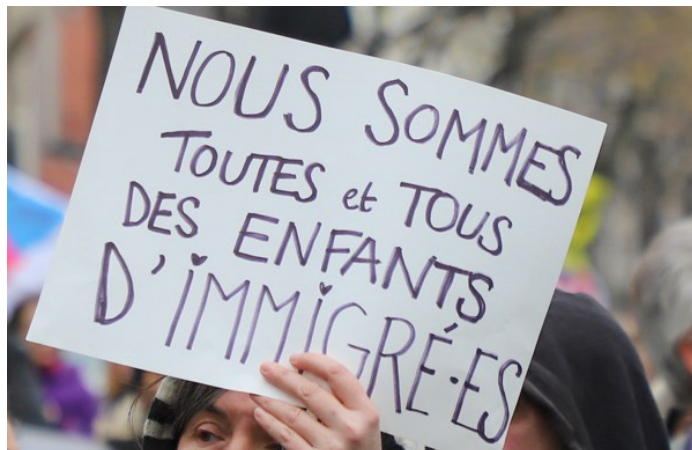 NOUS SOMMES
TOUTES et TOUS
DES ENFANTS
D'IMMIGRÉ·ES